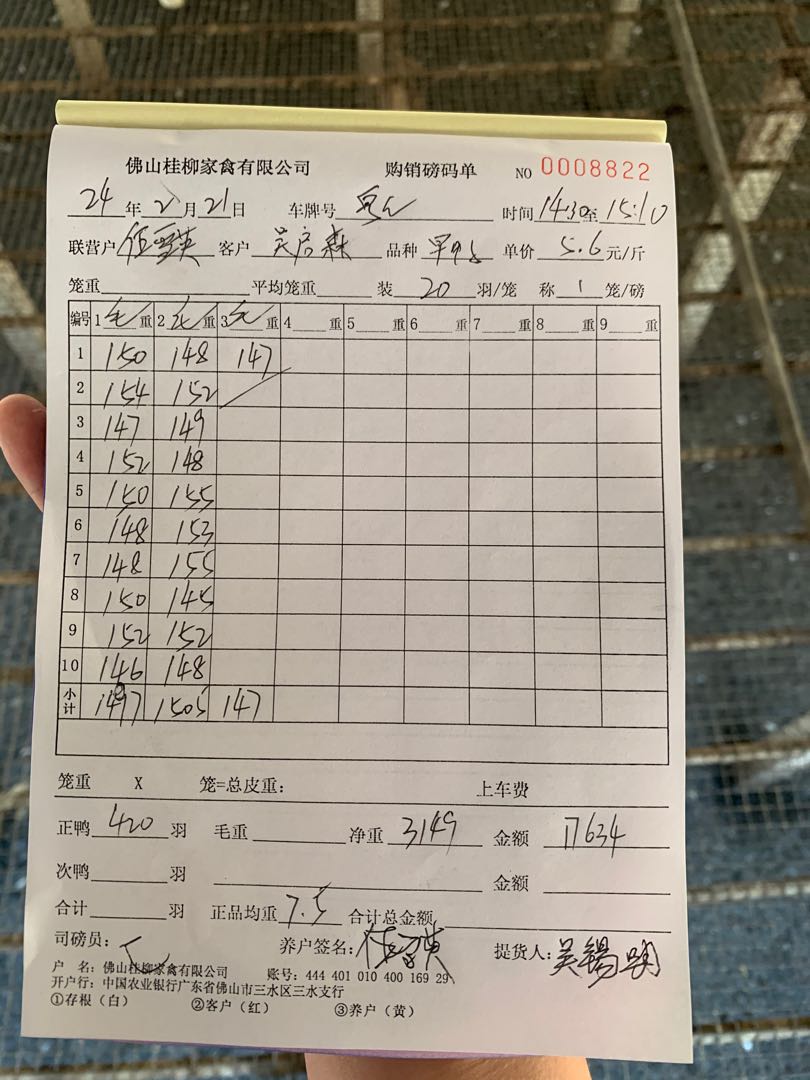 佛山桂柳家禽有限公司 购销磅码单 NO 0008822
24年2月21日 车牌号 时间14:30至15:10
联营户 客户 吴启森 品种 单价 5.6 元/斤
笼重 平均笼重 装 20 羽/笼 称 1 笼/磅
编号 1毛重 2毛重 3毛重 4 重 5 重 6 重 7 重 8 重 9 重
1 150 148 147
2 154 152
3 147 149
4 152 148
5 150 155
6 148 153
7 148 155
8 150 145
9 152 152
10 146 148
小计 1497 1505 147
笼重 X 笼=总皮重： 上车费
正鸭 420 羽 毛重 净重 3149 金额 17634
次鸭 羽 金额
合计 羽 正品均重 7.5 合计总金额
司磅员： 养户签名： 提货人：吴锡明
户 名：佛山桂柳家禽有限公司 账号：444 401 010 400 169 29
开户行：中国农业银行广东省佛山市三水区三水支行
①存根（白） ②客户（红） ③养户（黄）